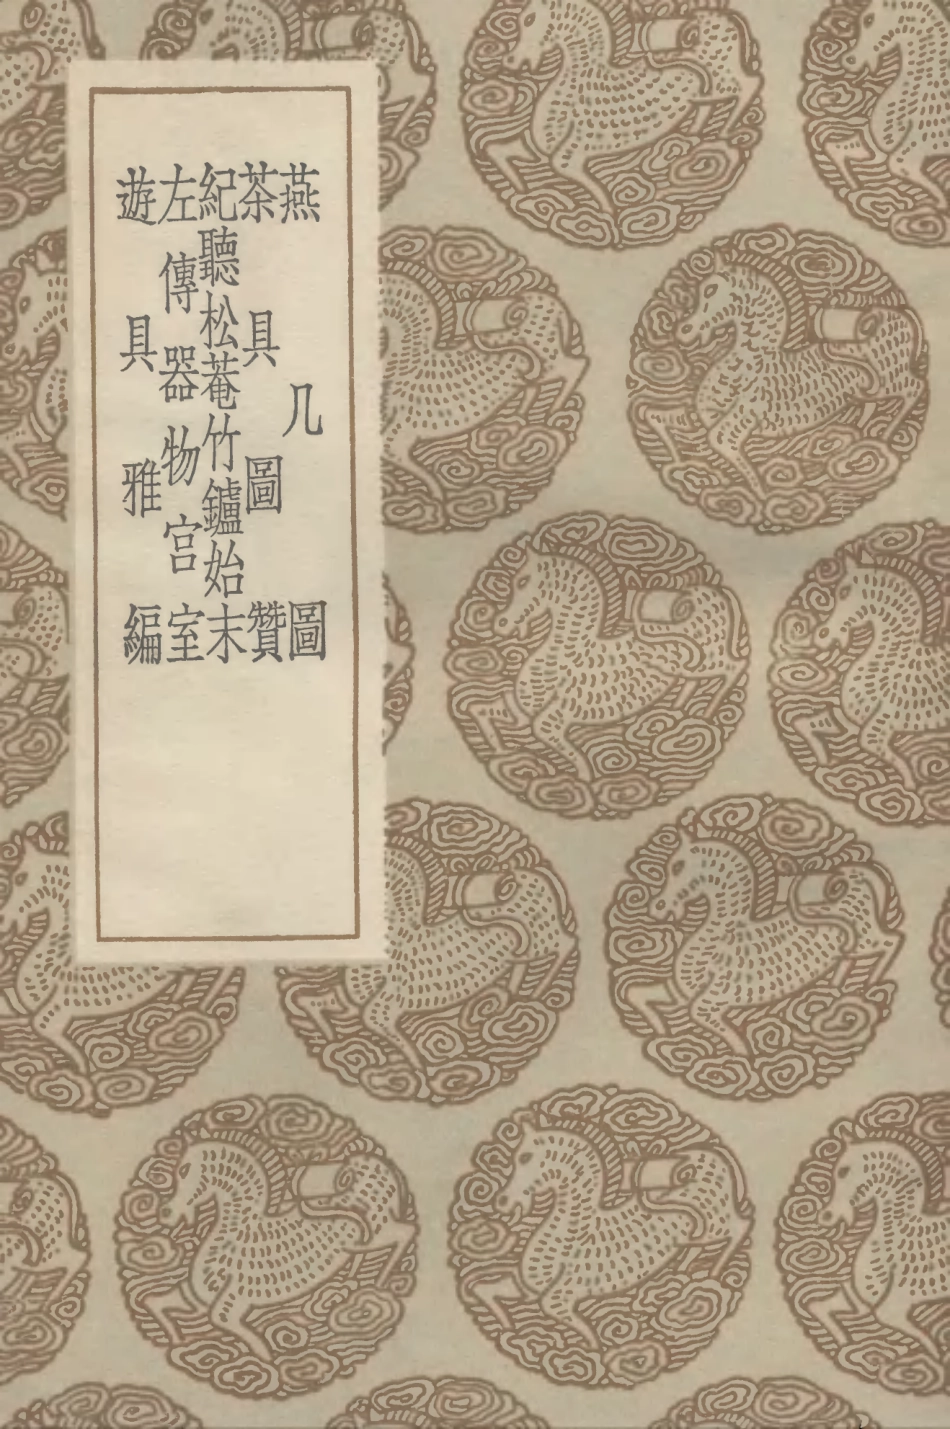 燕几圖
茶具圖贊
紀聽松菴竹鑪始末
左傳器物宮室
遊具雅編